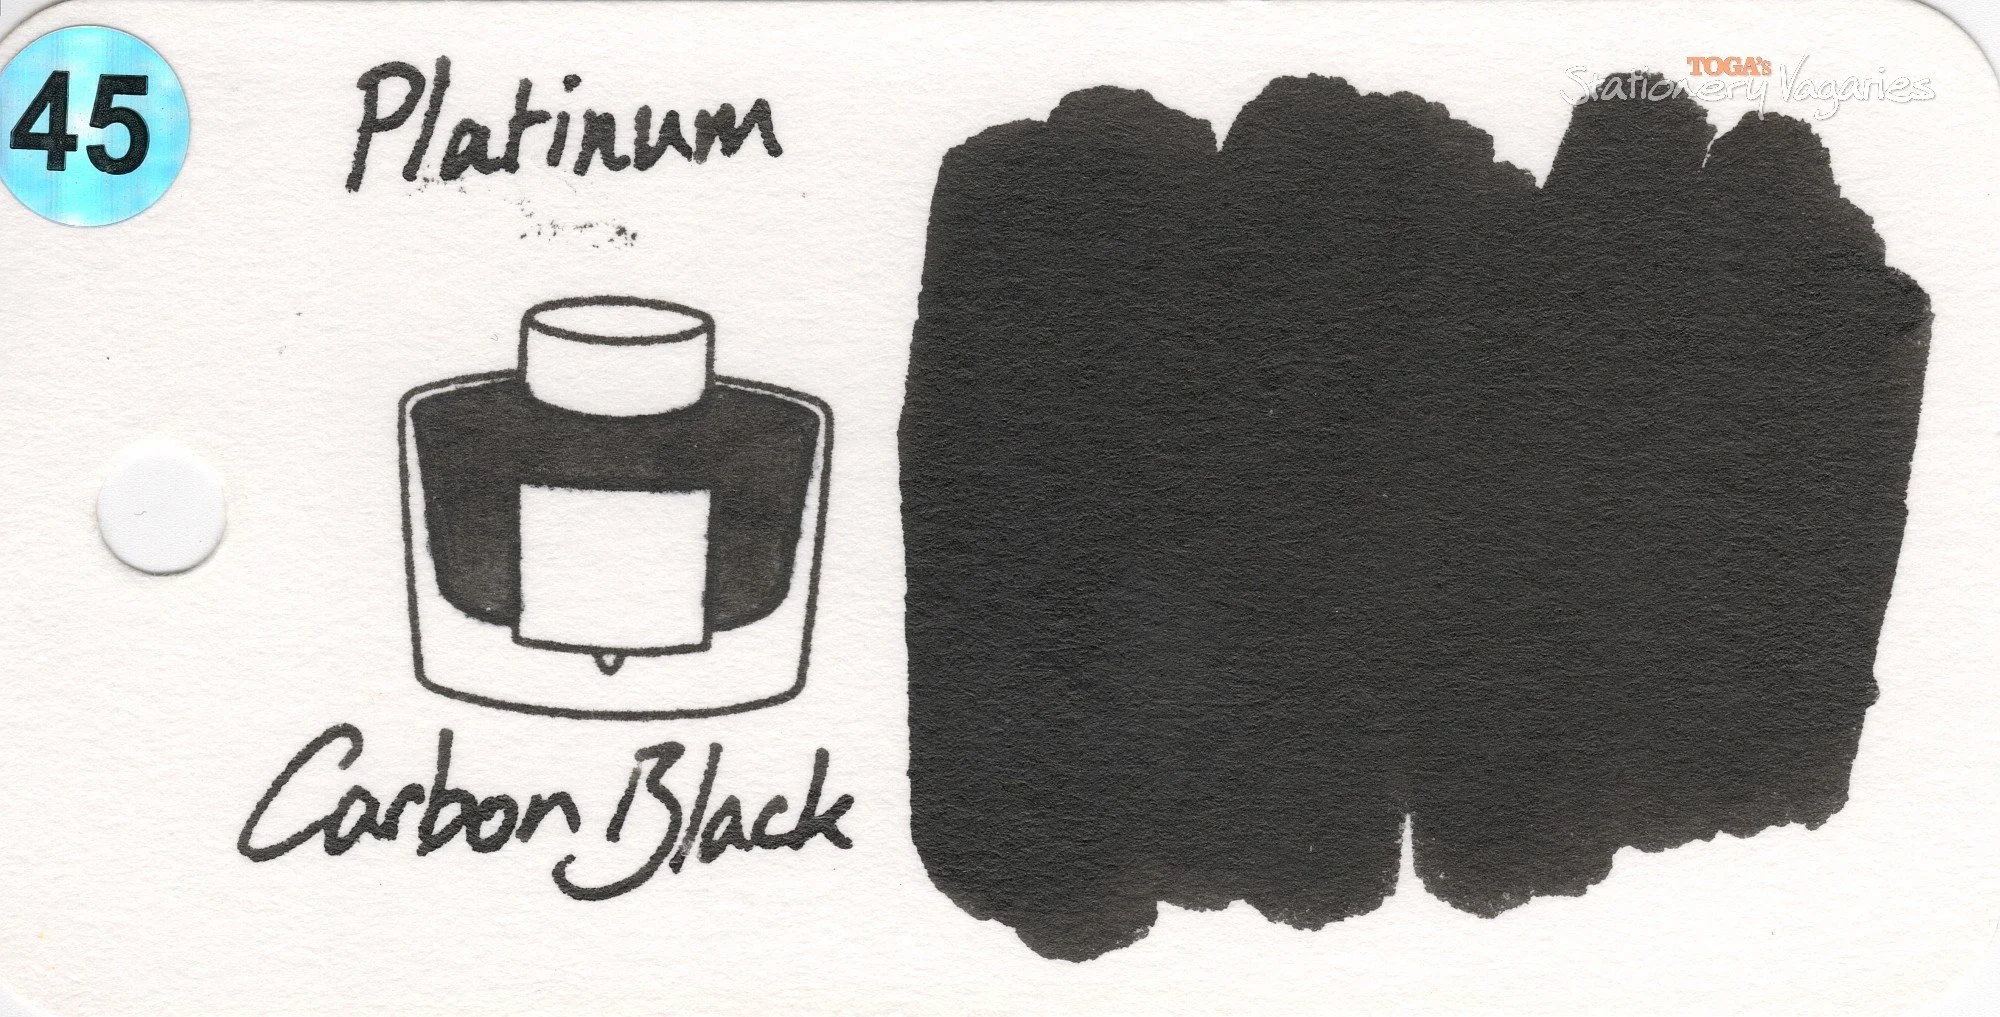 45
Platinum
TOGA's
Stationery Vagaries
Carbon Black